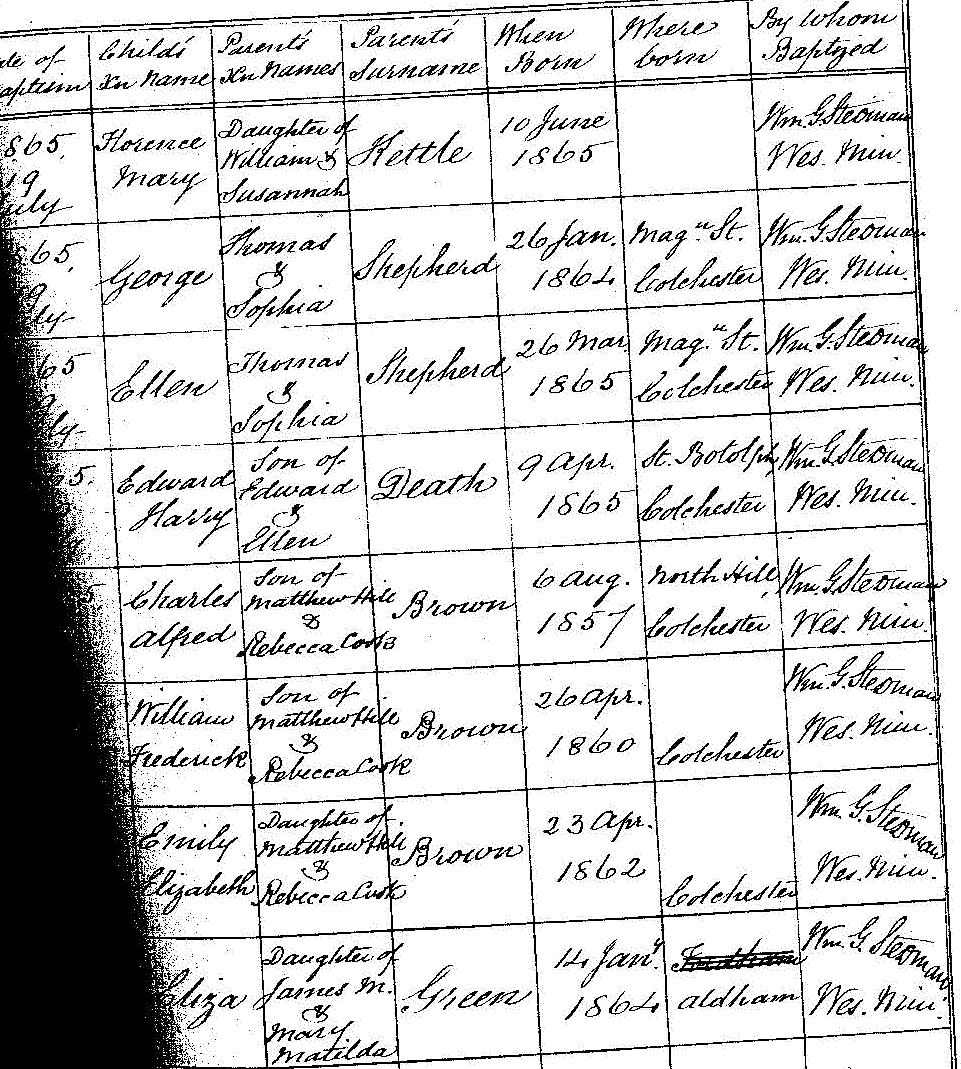 Child's
Xn Name
Parent's
Xn Names
Parent's
Surname
When
Born
Where
born
By Whom
Baptyzed
Florence
Mary
Daughter of
William &
Susannah
Kettle
10 June
1865
Wm. G. Stedman
Wes. Min.
George
Thomas
&
Sophia
Shepherd
26 Jan.
1864
Magn St.
Colchester
Wm. G. Stedman
Wes. Min.
Ellen
Thomas
&
Sophia
Shepherd
26 Mar.
1865
Magn St.
Colchester
Wm. G. Stedman
Wes. Min.
Edward
Harry
Son of
Edward
&
Ellen
Death
9 Apr.
1865
St. Botolph
Colchester
Wm. G. Stedman
Wes. Min.
Charles
Alfred
Son of
Matthew Hill
&
Rebecca Cook
Brown
6 Aug.
1857
North Hill,
Colchester
Wm. G. Stedman
Wes. Min.
William
Frederick
Son of
Matthew Hill
&
Rebecca Cook
Brown
26 Apr.
1860
Colchester
Wm. G. Stedman
Wes. Min.
Emily
Elizabeth
Daughter of
Matthew Hill
&
Rebecca Cook
Brown
23 Apr.
1862
Colchester
Wm. G. Stedman
Wes. Min.
Eliza
Daughter of
James M.
&
Mary
Matilda
Green
14 Jany.
1864
Fordham
Aldham
Wm. G. Stedman
Wes. Min.